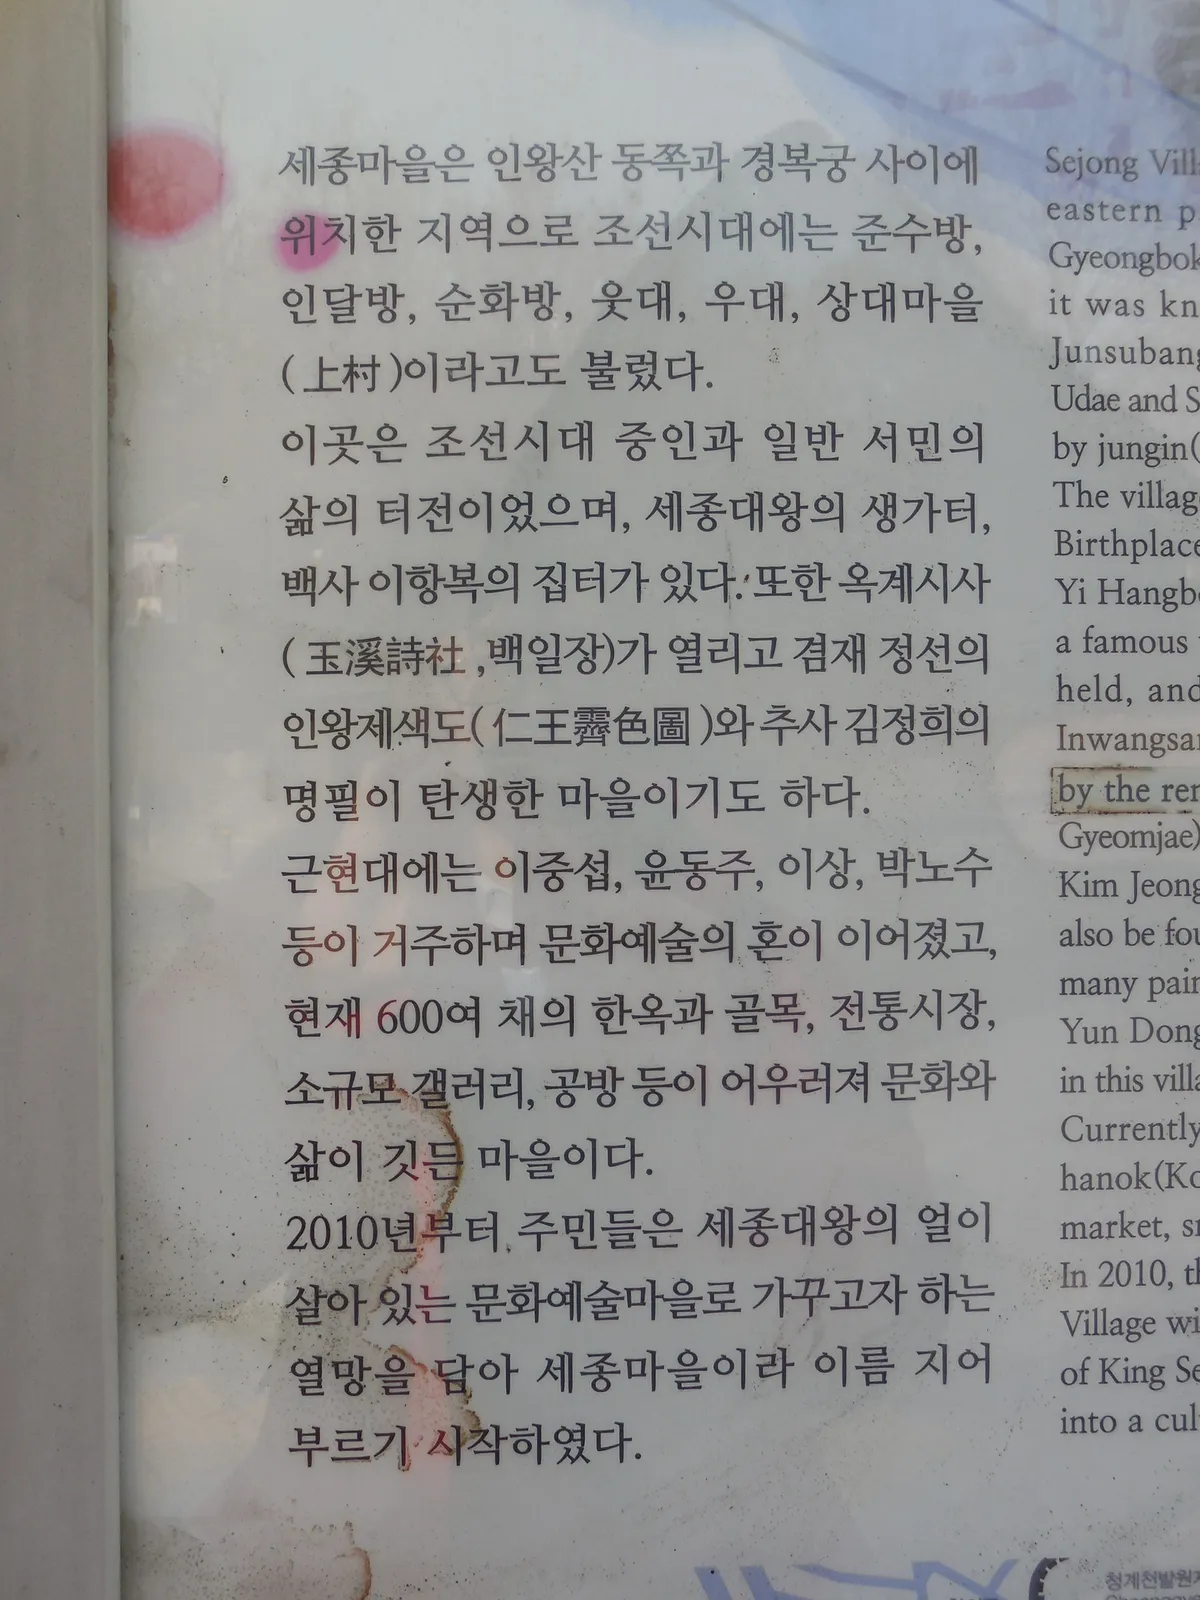 세종마을은 인왕산 동쪽과 경복궁 사이에
위치한 지역으로 조선시대에는 준수방,
인달방, 순화방, 웃대, 우대, 상대마을
(上村)이라고도 불렀다.
이곳은 조선시대 중인과 일반 서민의
삶의 터전이었으며, 세종대왕의 생가터,
백사 이항복의 집터가 있다. 또한 옥계시사
(玉溪詩社,백일장)가 열리고 겸재 정선의
인왕제색도(仁王霽色圖)와 추사 김정희의
명필이 탄생한 마을이기도 하다.
근현대에는 이중섭, 윤동주, 이상, 박노수
등이 거주하며 문화예술의 혼이 이어졌고,
현재 600여 채의 한옥과 골목, 전통시장,
소규모 갤러리, 공방 등이 어우러져 문화와
삶이 깃든 마을이다.
2010년부터 주민들은 세종대왕의 얼이
살아 있는 문화예술마을로 가꾸고자 하는
열망을 담아 세종마을이라 이름 지어
부르기 시작하였다.
Sejong Vill
eastern p
Gyeongbok
it was kn
Junsubang
Udae and S
by jungin(
The villag
Birthplace
Yi Hangb
a famous
held, and
Inwangsan
by the ren
Gyeomjae)
Kim Jeong
also be fou
many pain
Yun Dong
in this villa
Currently
hanok(Ko
market, sr
In 2010, th
Village wi
of King Se
into a cul
청계천발원지